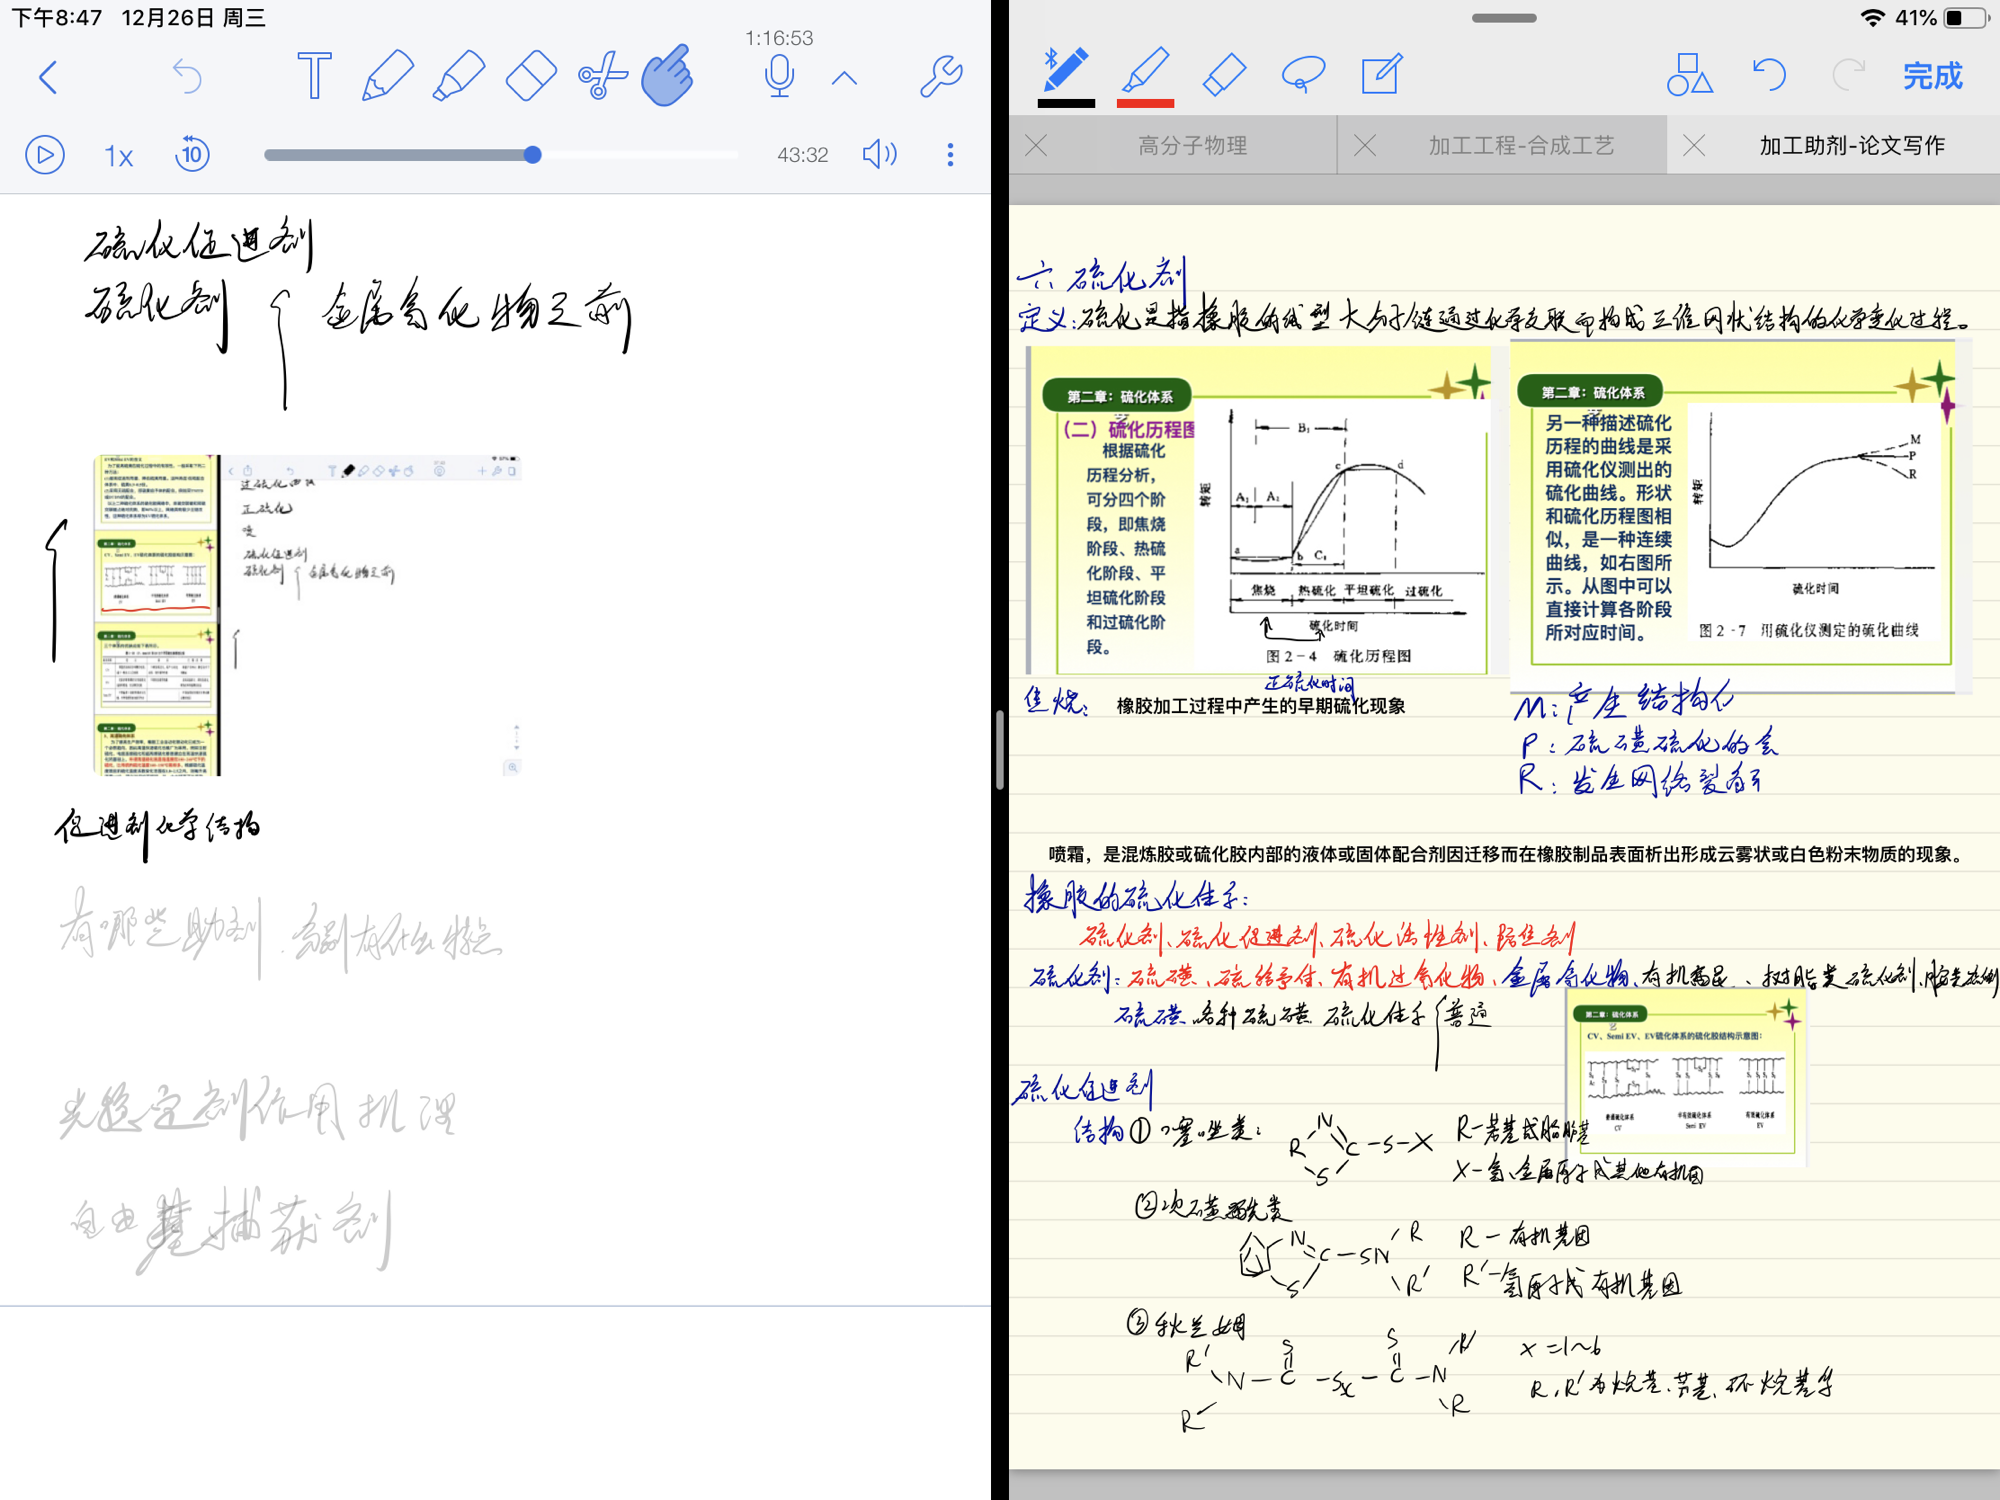 下午8:47 12月26日 周三
1:16:53
1x
10
43:32
硫化促进剂
硫化剂 { 金属氧化物之前
过硫化曲线
正硫化
喷
硫化促进剂
硫化剂 { 金属氧化物之前
促进剂化学结构
有哪些助剂、各别有什么特点
光稳定剂作用机理
自由基捕获剂
41%
完成
高分子物理
加工工程-合成工艺
加工助剂-论文写作
六 硫化剂
定义:硫化是指橡胶的线型大分子链通过化学交联而构成三维网状结构的化学变化过程。
第二章：硫化体系
（二）硫化历程图
根据硫化
历程分析，
可分四个阶
段，即焦烧
阶段、热硫
化阶段、平
坦硫化阶段
和过硫化阶
段。
转矩
B₁
c d
A₂ A₁
a b C₁
焦烧 热硫化 平坦硫化 过硫化
硫化时间
图2-4 硫化历程图
正硫化时间
第二章：硫化体系
另一种描述硫化
历程的曲线是采
用硫化仪测出的
硫化曲线。形状
和硫化历程图相
似，是一种连续
曲线，如右图所
示。从图中可以
直接计算各阶段
所对应时间。
转矩
M
P
R
硫化时间
图2-7 用硫化仪测定的硫化曲线
焦烧： 橡胶加工过程中产生的早期硫化现象
M:产生结构化
P:硫磺硫化的会
R:发生网络裂解
喷霜，是混炼胶或硫化胶内部的液体或固体配合剂因迁移而在橡胶制品表面析出形成云雾状或白色粉末物质的现象。
橡胶的硫化体系:
硫化剂、硫化促进剂、硫化活性剂、防焦剂
硫化剂:硫磺、硫给予体、有机过氧化物、金属氧化物、有机、树脂类硫化剂、
硫磺 各种硫磺 硫化体系 { 普通
第二章：硫化体系
CV、Semi EV、EV硫化体系的硫化胶结构示意图：
普通硫化体系 半有效硫化体系 有效硫化体系
CV Semi EV EV
硫化促进剂
结构 ① 噻唑类:
R N C -S-X
S
R-芳基或脂肪基
X-氢、金属原子或其他有机团
② 次磺酰胺类
N C - SN R
S R'
R - 有机基团
R'-氢原子或有机基团
③ 秋兰姆
R' S S R'
N - C - Sx - C - N
R R
x =1~6
R,R'为烷基、芳基、环烷基等